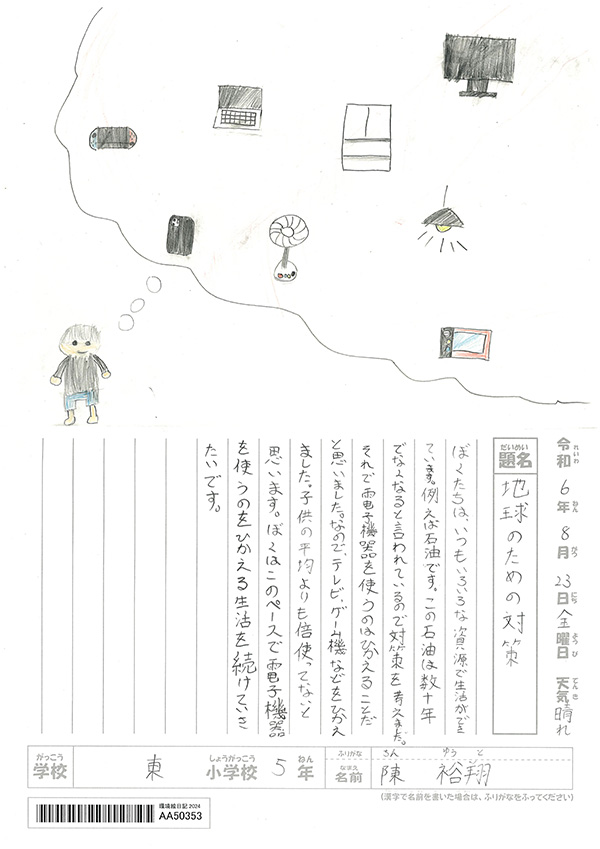 令和6年8月23日金曜日 天気晴れ
れいわ ねん がつ にち ようび てんき
だいめい
題名
地球のための対策
ぼくたちは、いつもいろいろな資源で生活ができ
ています。例えば石油です。この石油は数十年
でなくなると言われているので対策を考えました。
それで電子機器を使うのはひかえることだ
と思いました。なので、テレビ、ゲーム機などをひかえ
ました。子供の平均よりも倍使ってないと
思います。ぼくはこのペースで電子機器
を使うのをひかえる生活を続けていき
たいです。
がっこう
学校
東
しょうがっこう
小学校
5
ねん
年
ふりがな
ちん ゆう と
なまえ
名前
陳 裕翔
(漢字で名前を書いた場合は、ふりがなをふってください)
環境絵日記2024
AA50353